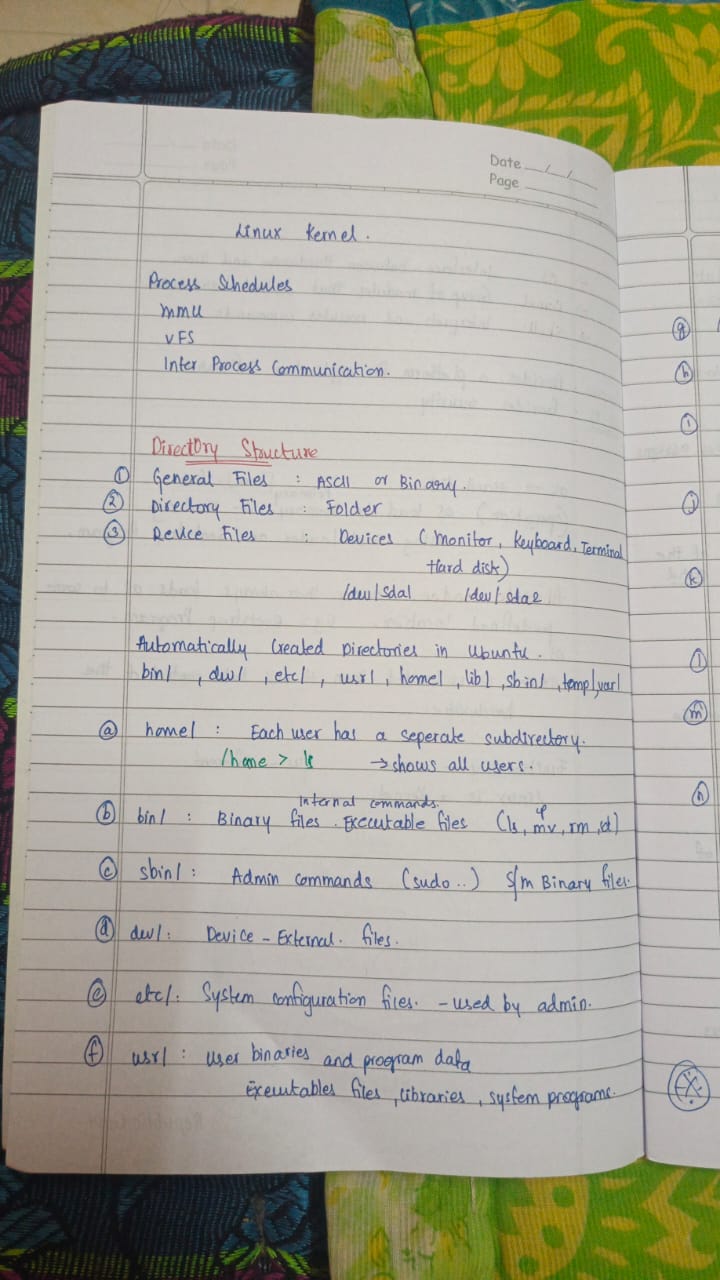 Date __/__/__
Page ______
Linux Kernel.
Process Schedules
MMU
VFS
Inter Process Communication.
Directory Structure
① General Files : ASCII or Binary.
② Directory Files : Folder
③ Device Files : Devices (Monitor, Keyboard, Terminal
Hard disk)
/dev/sda1 /dev/sda2
Automatically Created Directories in Ubuntu.
bin/ , dev/ , etc/ , usr/ , home/ , lib/ , sbin/ , temp/, var/
ⓐ home/ : Each user has a seperate subdirectory.
/home > ls → shows all users.
internal commands. cp
ⓑ bin/ : Binary files . Executable files (ls, mv, rm, cd)
ⓒ sbin/ : Admin commands (sudo..) S/m Binary files.
ⓓ dev/ : Device - External. files.
ⓔ etc/ : System configuration files. - used by admin.
ⓕ usr/ : User binaries and program data
Executables files , libraries , system programs.
ⓖ
ⓗ
ⓘ
ⓙ
ⓚ
ⓛ
ⓜ
ⓝ